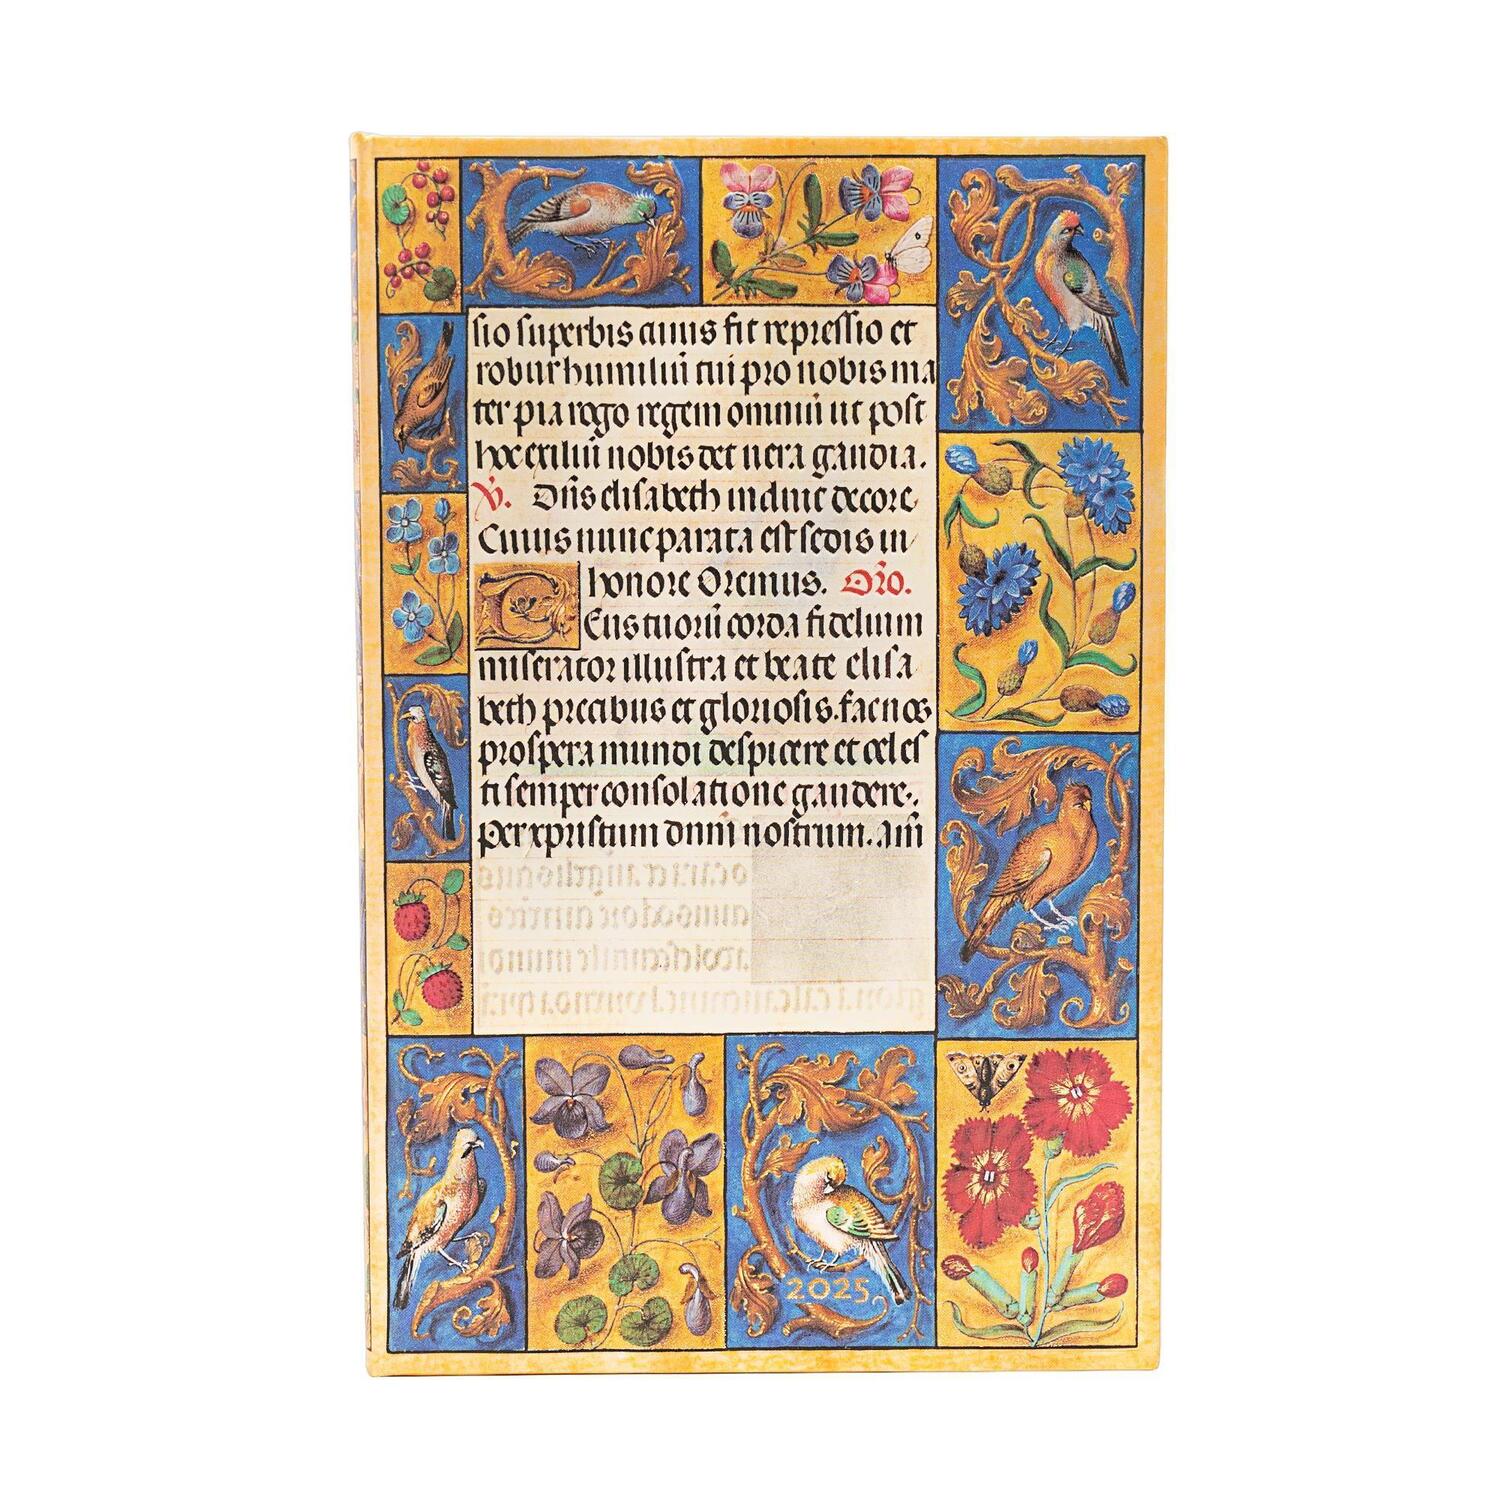 sio superbis cuius fit repressio et
robur humiliū tui pro nobis ma
ter pia rogo regem omniū ut post
hoc exiliū nobis det vera gaudia.
V. Dn̄s elisabeth induit decore
Cuius nunc parata est sedis in
honore Oremus. Or̄o.
Deus tuorū corda fidelium
miserator illustra et beate elisa
beth precibus et gloriosis. fac nos
prospera mundi despicere et celes
ti semper consolatione gaudere.
Per xpristum dnm̄ nostrum. am̄
2025